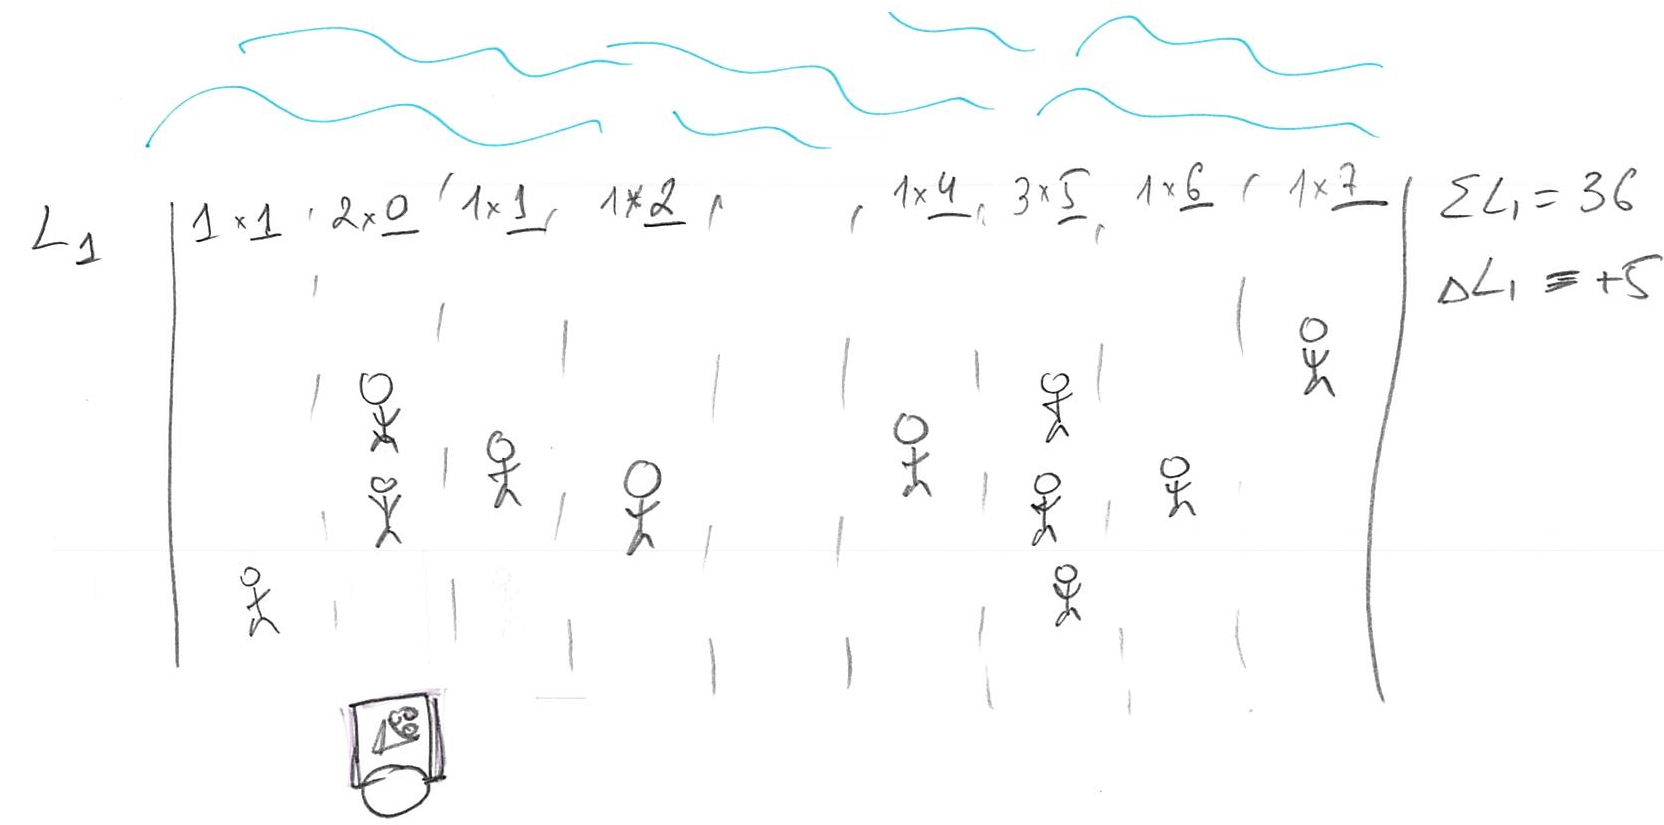 L₁ 1×1, 2×0, 1×1, 1×2, , 1×4, 3×5, 1×6, 1×7 ΣL₁ = 36
ΔL₁ = +5